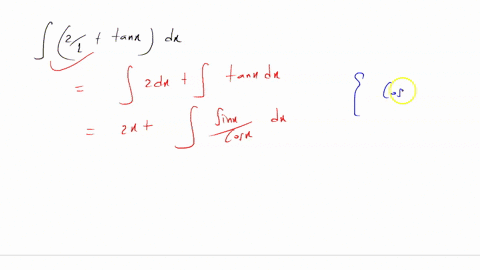 ∫ (2/1 + tanx) dx
= ∫ 2dx + ∫ tanx dx
= 2x + ∫ sinx/cosx dx
{ Cos